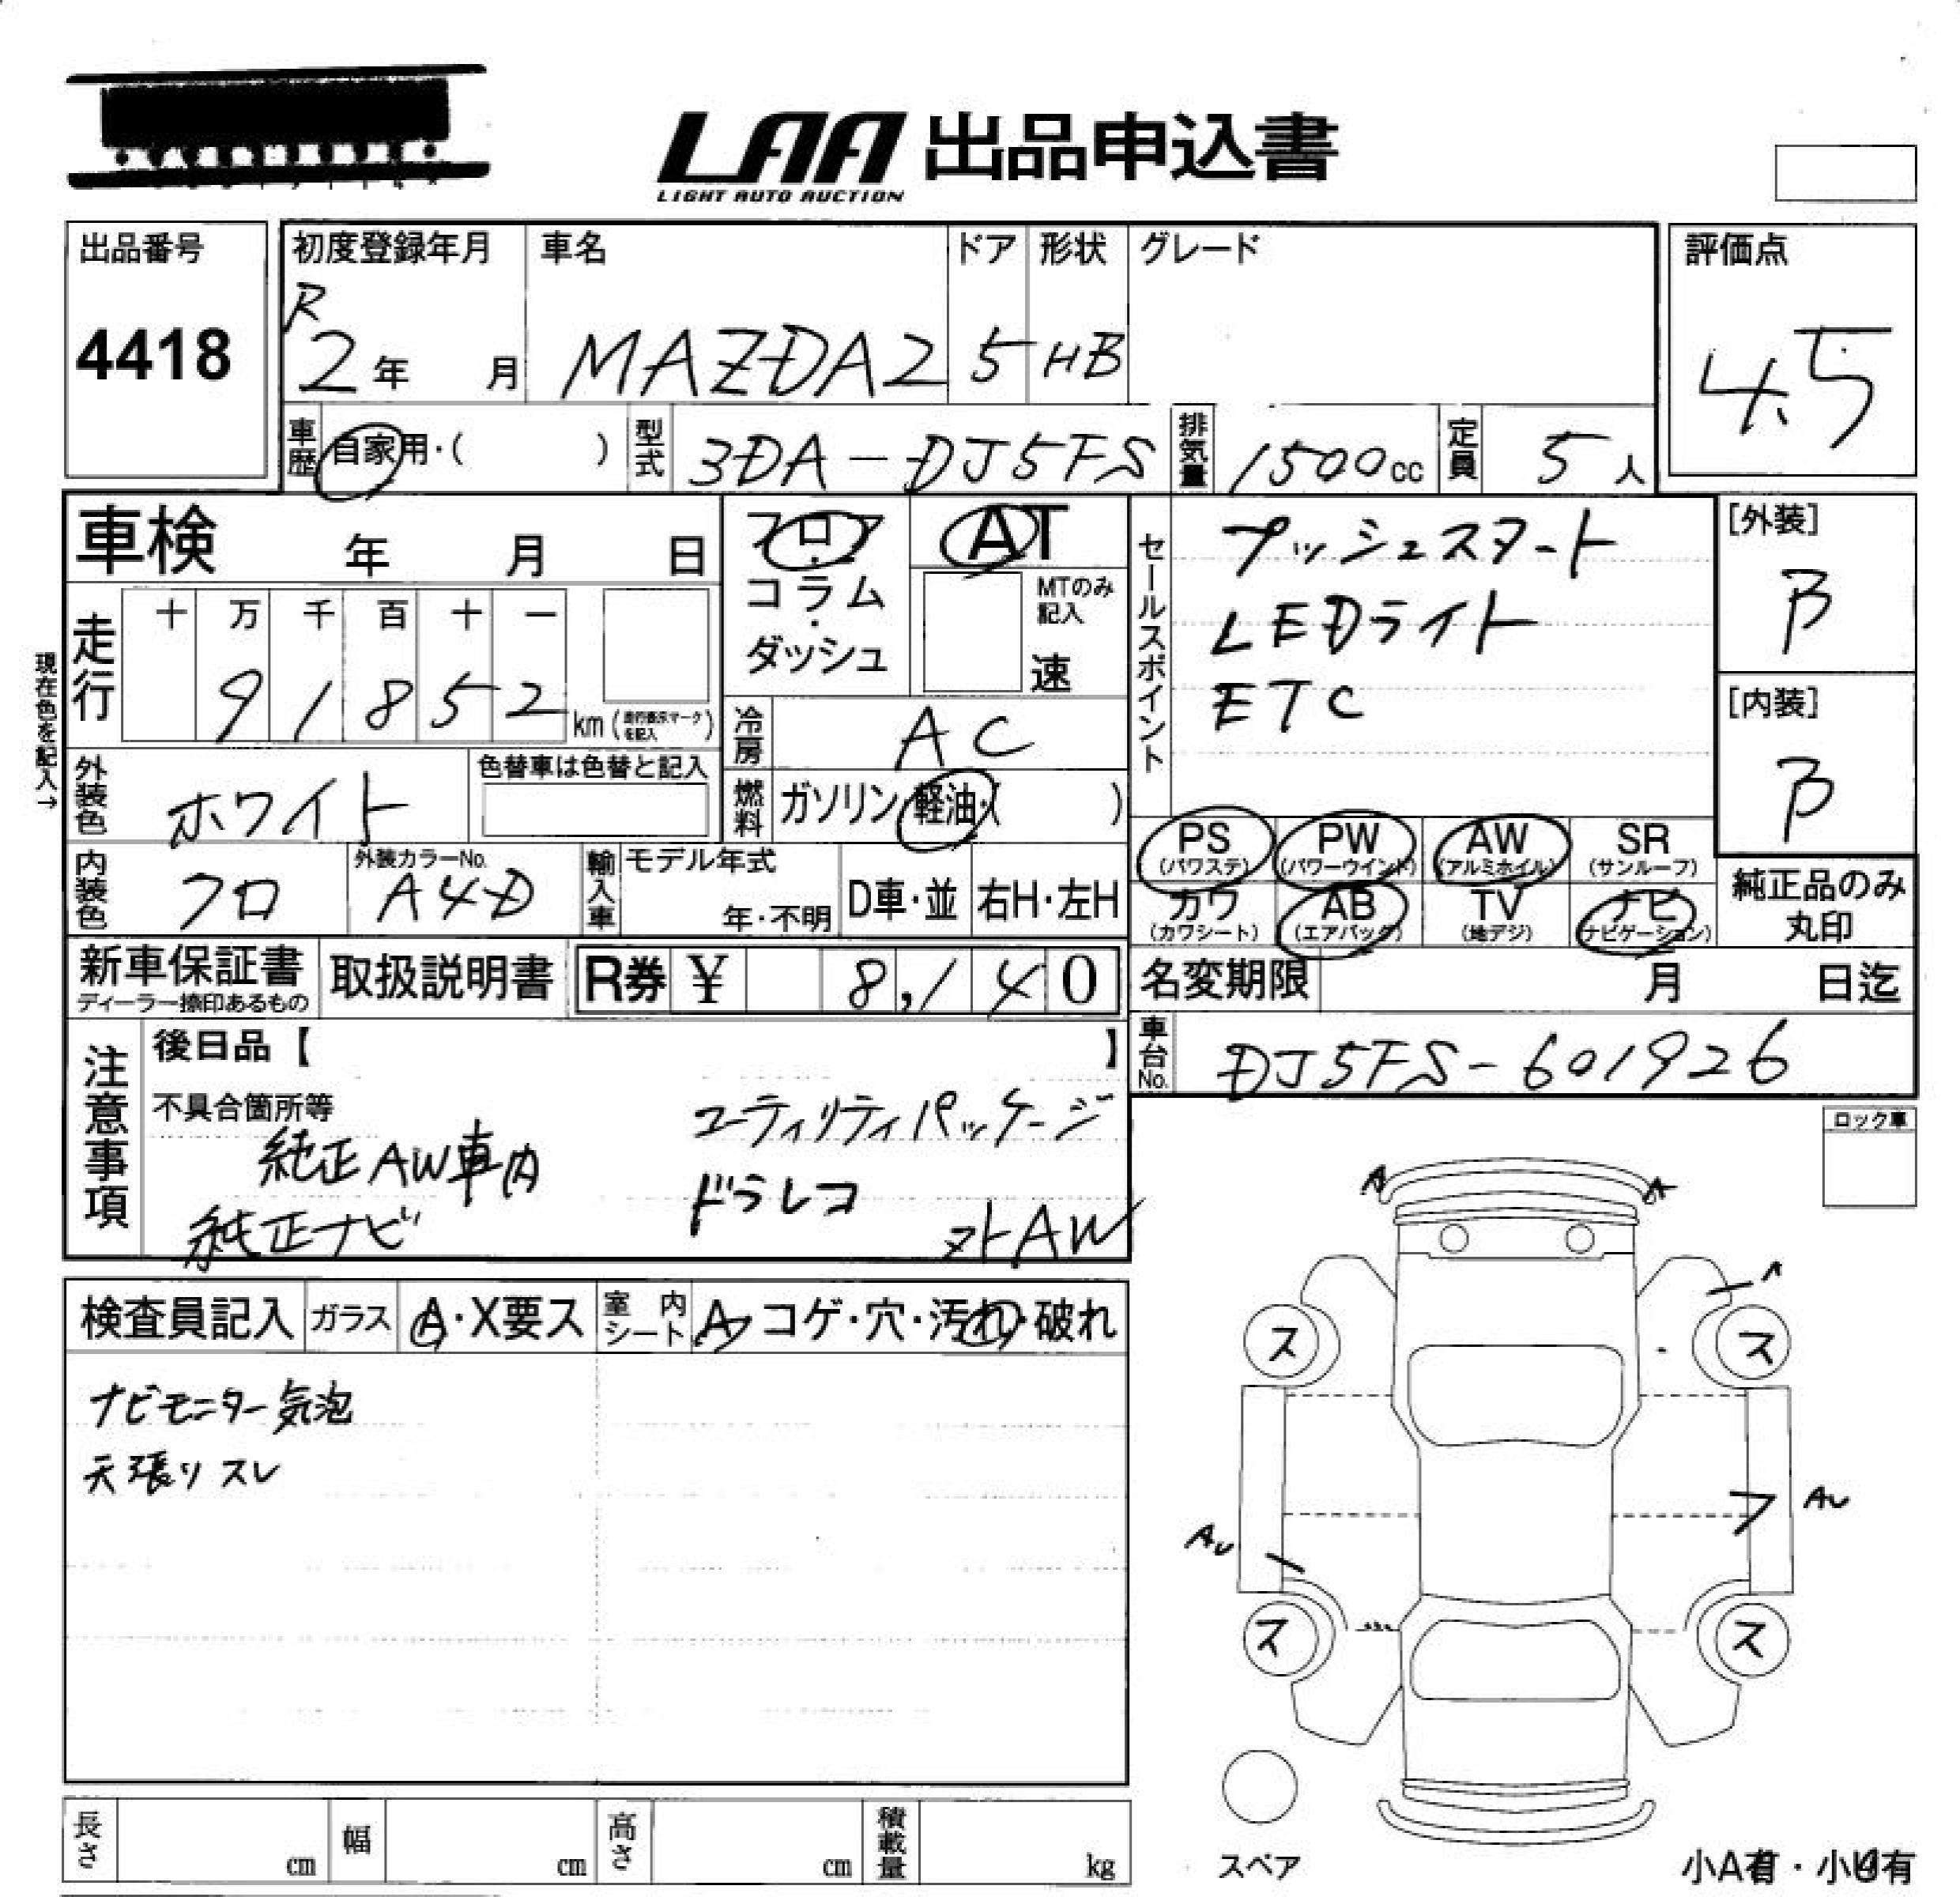 LAA 出品申込書
LIGHT AUTO AUCTION
出品番号
4418
初度登録年月
R
2年 月
車名
MAZDA2
ドア
5
形状
HB
グレード
評価点
4.5
車歴
自家用・( )
型式
3DA-DJ5FS
排気量
1500cc
定員
5人
車検 年 月 日
フロア
・
コラム
・
ダッシュ
AT
MTのみ
記入
速
セールスポイント
プッシュスタート
LEDライト
ETC
[外装]
B
[内装]
B
現在色を記入→
走行
十 万 千 百 十 一
9 1 8 5 2 km (走行表示マークを記入)
冷房
AC
外装色
ホワイト
色替車は色替と記入
燃料
ガソリン・軽油・( )
PS
(パワステ)
PW
(パワーウインド)
AW
(アルミホイル)
SR
(サンルーフ)
カワ
(カワシート)
AB
(エアバック)
TV
(地デジ)
ナビ
(ナビゲーション)
純正品のみ
丸印
内装色
クロ
外装カラーNo.
A4D
輸入車
モデル年式
年・不明
D車・並
右H・左H
新車保証書
ディーラー捺印あるもの
取扱説明書
R券 ¥ 8,140
名変期限 月 日迄
車台No.
DJ5FS-601926
注意事項
後日品【 】
不具合箇所等
ユーティリティパッケージ
純正AW車内
ドラレコ
純正ナビ
外AW
ロック車
検査員記入
ガラス
A・X要ス
室内シート
A・コゲ・穴・汚れ・破れ
ナビモニター気泡
天張リスレ
A
A
A
ス
ス
AU
AU
ス
ス
スペア
長さ cm
幅 cm
高さ cm
積載量 kg
小A有・小U有